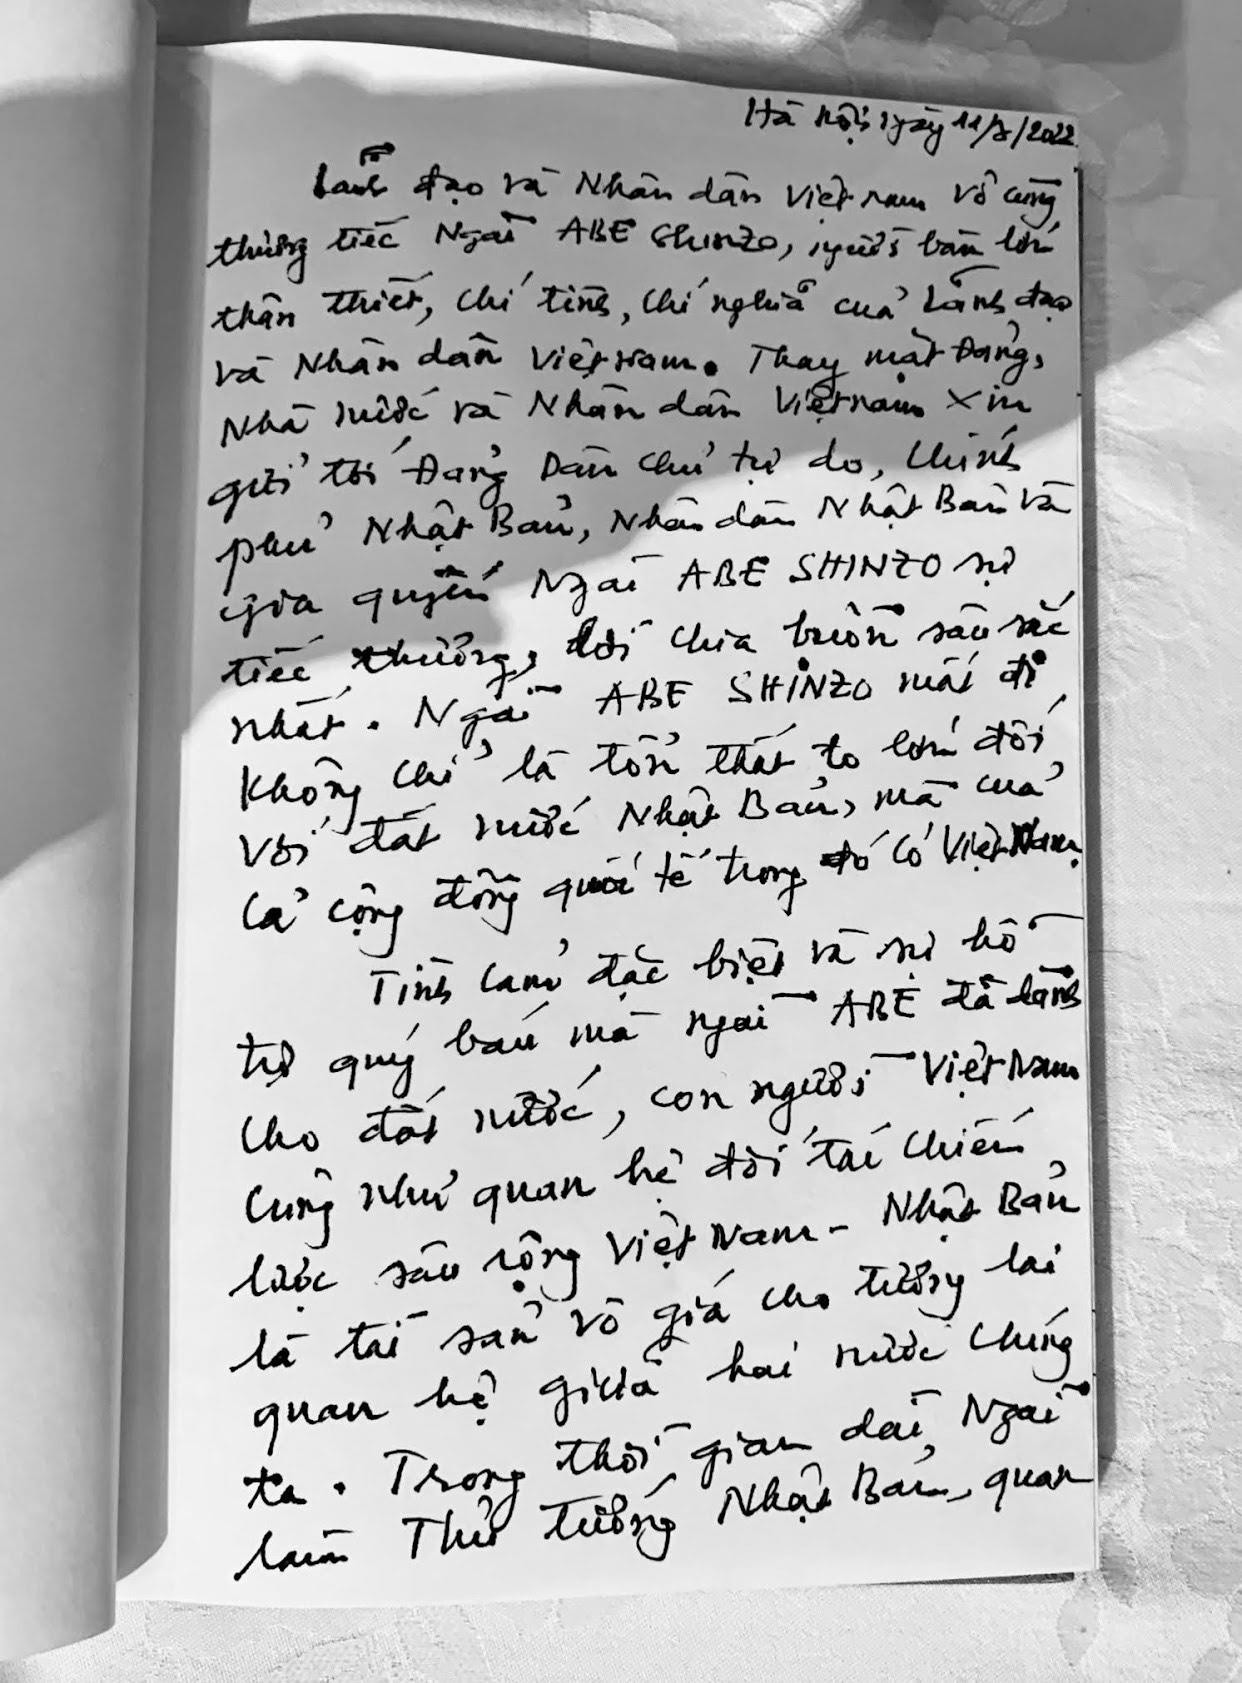 Hà Nội, ngày 11/7/2022
Lãnh đạo và Nhân dân Việt Nam vô cùng
thương tiếc Ngài ABE Shinzo, người bạn lớn
thân thiết, chí tình, chí nghĩa của Lãnh đạo
và Nhân dân Việt Nam. Thay mặt Đảng,
Nhà nước và Nhân dân Việt Nam xin
gửi tới Đảng Dân chủ tự do, Chính
phủ Nhật Bản, Nhân dân Nhật Bản và
gia quyến Ngài ABE SHINZO sự
tiếc thương, lời chia buồn sâu sắc
nhất. Ngài ABE SHINZO mất đi
không chỉ là tổn thất to lớn đối
với đất nước Nhật Bản, mà của
cả cộng đồng quốc tế trong đó có Việt Nam.
Tình cảm đặc biệt và sự hỗ
trợ quý báu mà ngài ABE đã dành
cho đất nước, con người Việt Nam
cũng như quan hệ đối tác chiến
lược sâu rộng Việt Nam - Nhật Bản
là tài sản vô giá cho tương lai
quan hệ giữa hai nước chúng
ta. Trong thời gian dài, Ngài
làm Thủ tướng Nhật Bản, quan